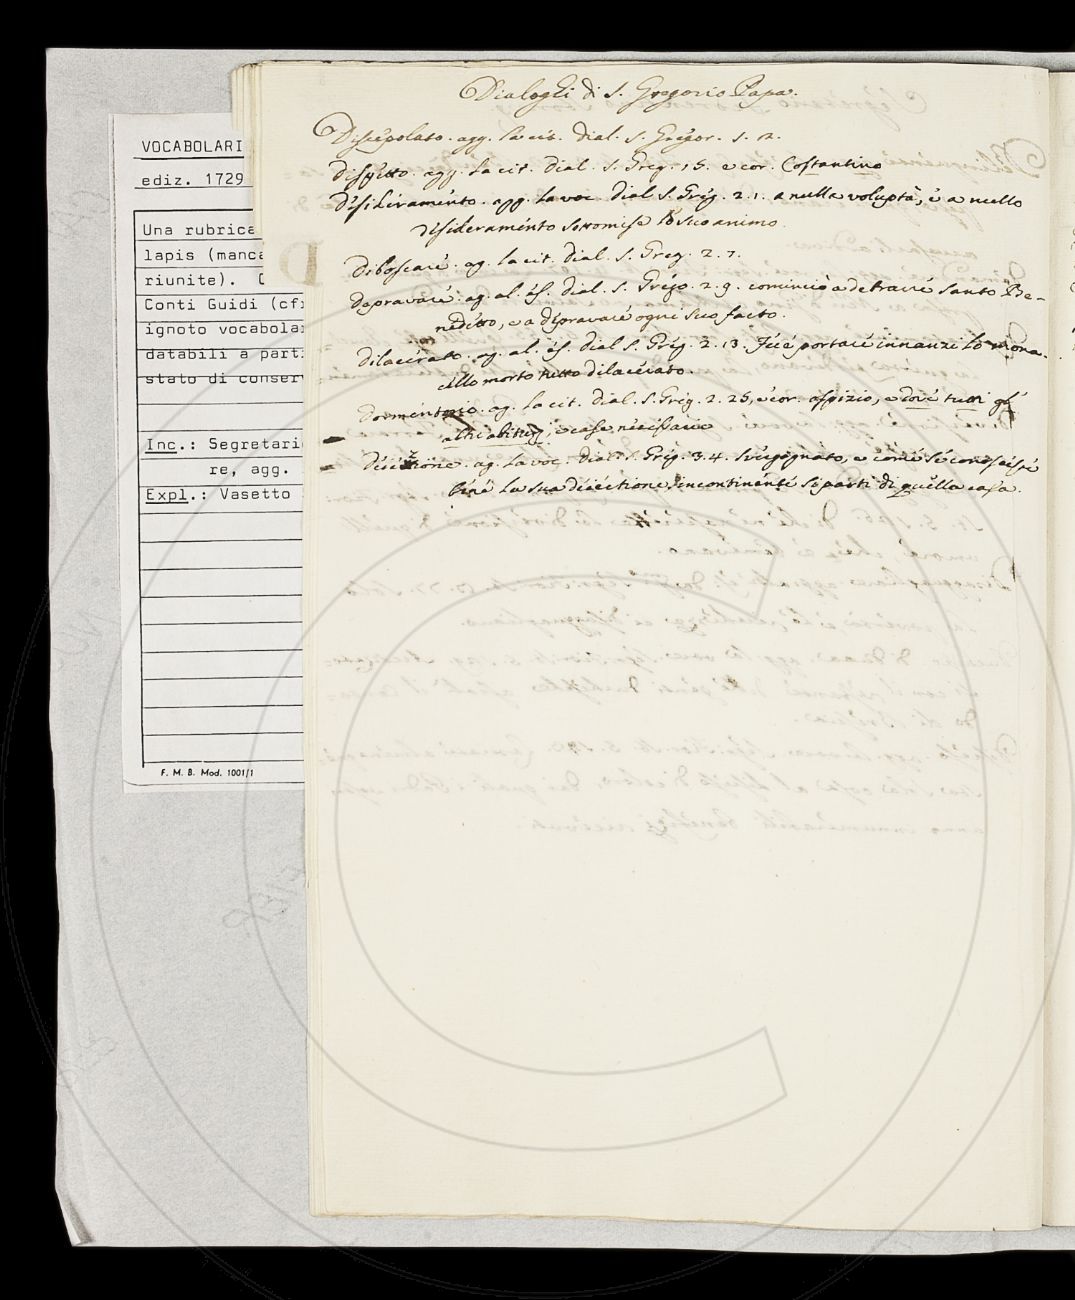 Dialoghi di S. Gregorio Papa.
Discepolato. agg. la cit. Dial. S. Gregor. 1. 2.
Dispetto. agg. la cit. Dial. S. Greg. 15. e cor. Costantino
Desideramento. agg. la voc. Dial. S. Greg. 2. 1. a nulla voluptà, e a nullo
desideramento sottomise lo suo animo.
Diboscare. ag. la cit. Dial. S. Greg. 2. 7.
Depravare. ag. al. es. Dial. S. Grego. 2. 9. cominciò a detrarre Santo Be-
nedetto, e a depravare ogni suo fatto.
Dilacerato. ag. al. es. Dial. S. Greg. 2. 13. Fece portare innanzi lo mona-
cello morto tutto dilacerato.
Dormentorio. ag. la cit. Dial. S. Greg. 2. 25, e cor. ospizio, e dove tutti gli
altri, e case necessarie
ag. la voc. Dial. S. Greg. 3. 4. svergognato, e come se conoscesse
bene la sua incontinente si partì di quella casa.
VOCABOLARI
ediz. 1729
Una rubrica
lapis (manca
riunite).
Conti Guidi (cf
ignoto vocabola
databili a parti
stato di conserv
Inc.: Segretari
re, agg.
Expl.: Vasetto
F. M. B. Mod. 1001/1
D